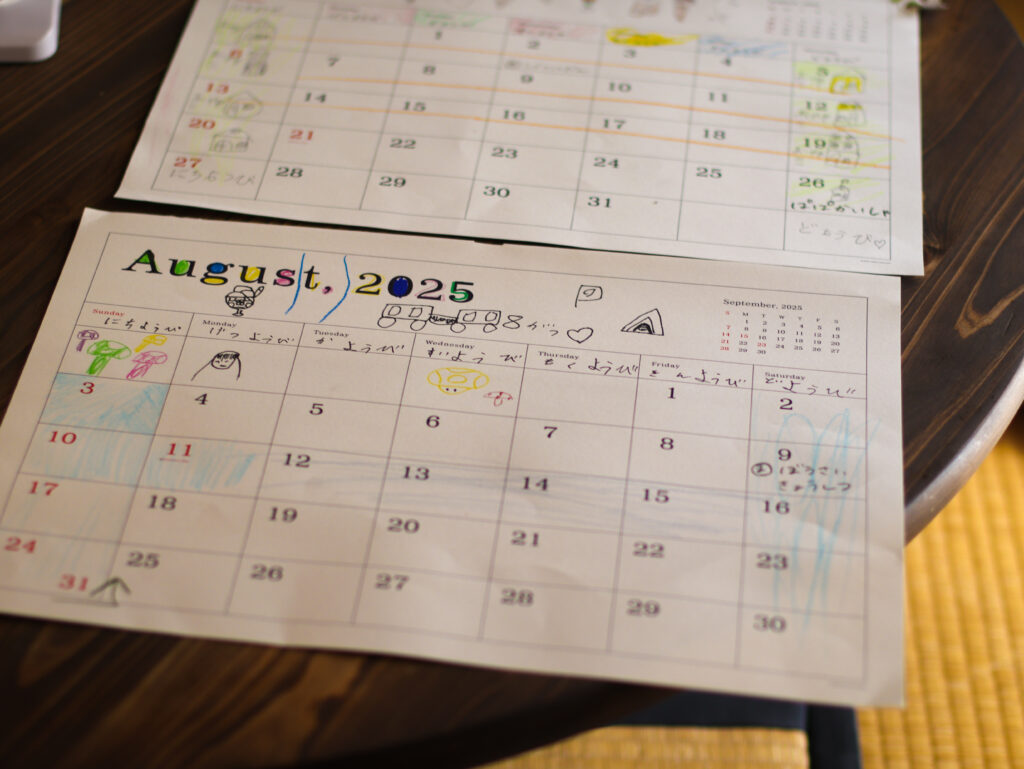 1 2 3 4 5
6 7 8 9 10 11 12
13 14 15 16 17 18 19
20 21 22 23 24 25 26
27 28 29 30 31
にちようび
ぱぱかいしゃ
どようび♡
August, 2025
8がつ
September, 2025
S M T W T F S
1 2 3 4 5 6
7 8 9 10 11 12 13
14 15 16 17 18 19 20
21 22 23 24 25 26 27
28 29 30
Sunday Monday Tuesday Wednesday Thursday Friday Saturday
にちようび げつようび かようび すいようび もくようび きんようび どようび
1 2
3 4 5 6 7 8 9
② ぼうさい
きょうしつ
10 11 12 13 14 15 16
17 18 19 20 21 22 23
24 25 26 27 28 29 30
31